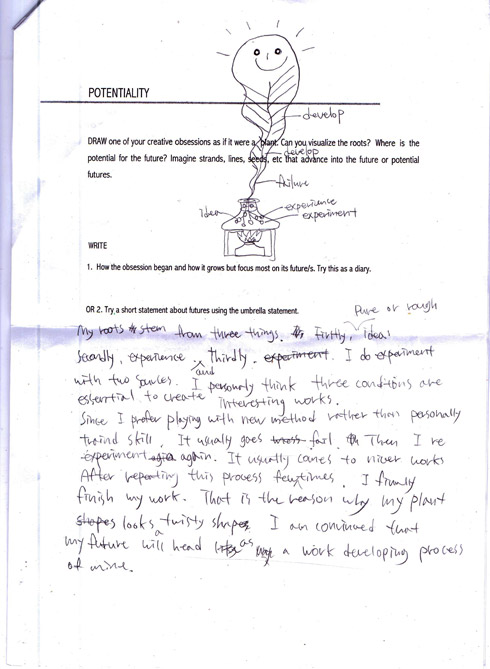 POTENTIALITY
develop
DRAW one of your creative obsessions as if it were a plant. Can you visualize the roots? Where is the
develop
potential for the future? Imagine strands, lines, seeds, etc that advance into the future or potential
futures.
failure
idea
experience
experiment
WRITE
1. How the obsession began and how it grows but focus most on its future/s. Try this as a diary.
OR 2. Try a short statement about futures using the umbrella statement.
Pure or rough
My roots stem from three things. Firstly, ideas
Secondly, experience and Thirdly, experiment. I do experiment
with two sources. I personally think three conditions are
essential to create interesting works.
Since I prefer playing with new method rather than personally
traind skill, It usually goes fail. Then I re
experiment again. It usually comes to nicer works
After repeating this process few times, I finally
finish my work. That is the reason why my plant
looks a twisty shape I am convinced that
my future will head as a work developing process
of mine.